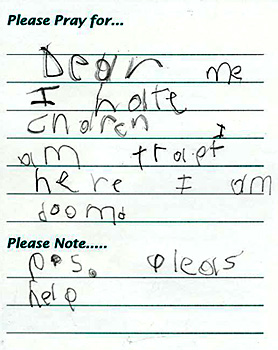 Please Pray for...
Dear me
I hate
charen I
am trapt
here I am
doomd
Please Note.....
p.s. pleas
help